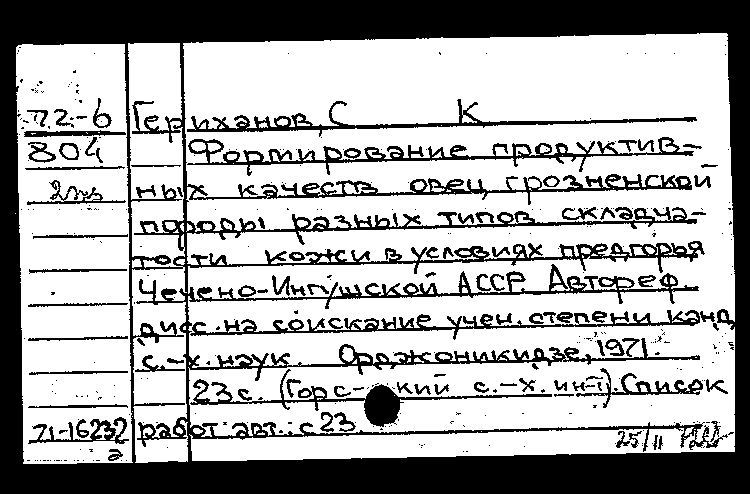 72-6 Гериханов, С К
804 Формирование продуктив-
2 экз ных качеств овец грозненской
породы разных типов складча-
тости кожи в условиях предгорья
Чечено-Ингушской АССР. Автореф.
дисс. на соискание учен. степени канд
с.-х. наук. Орджоникидзе, 1971.
23 с. (Горс- кий с.-х. ин-т). Список
71-16232 работ авт.: с 23
а 25/II